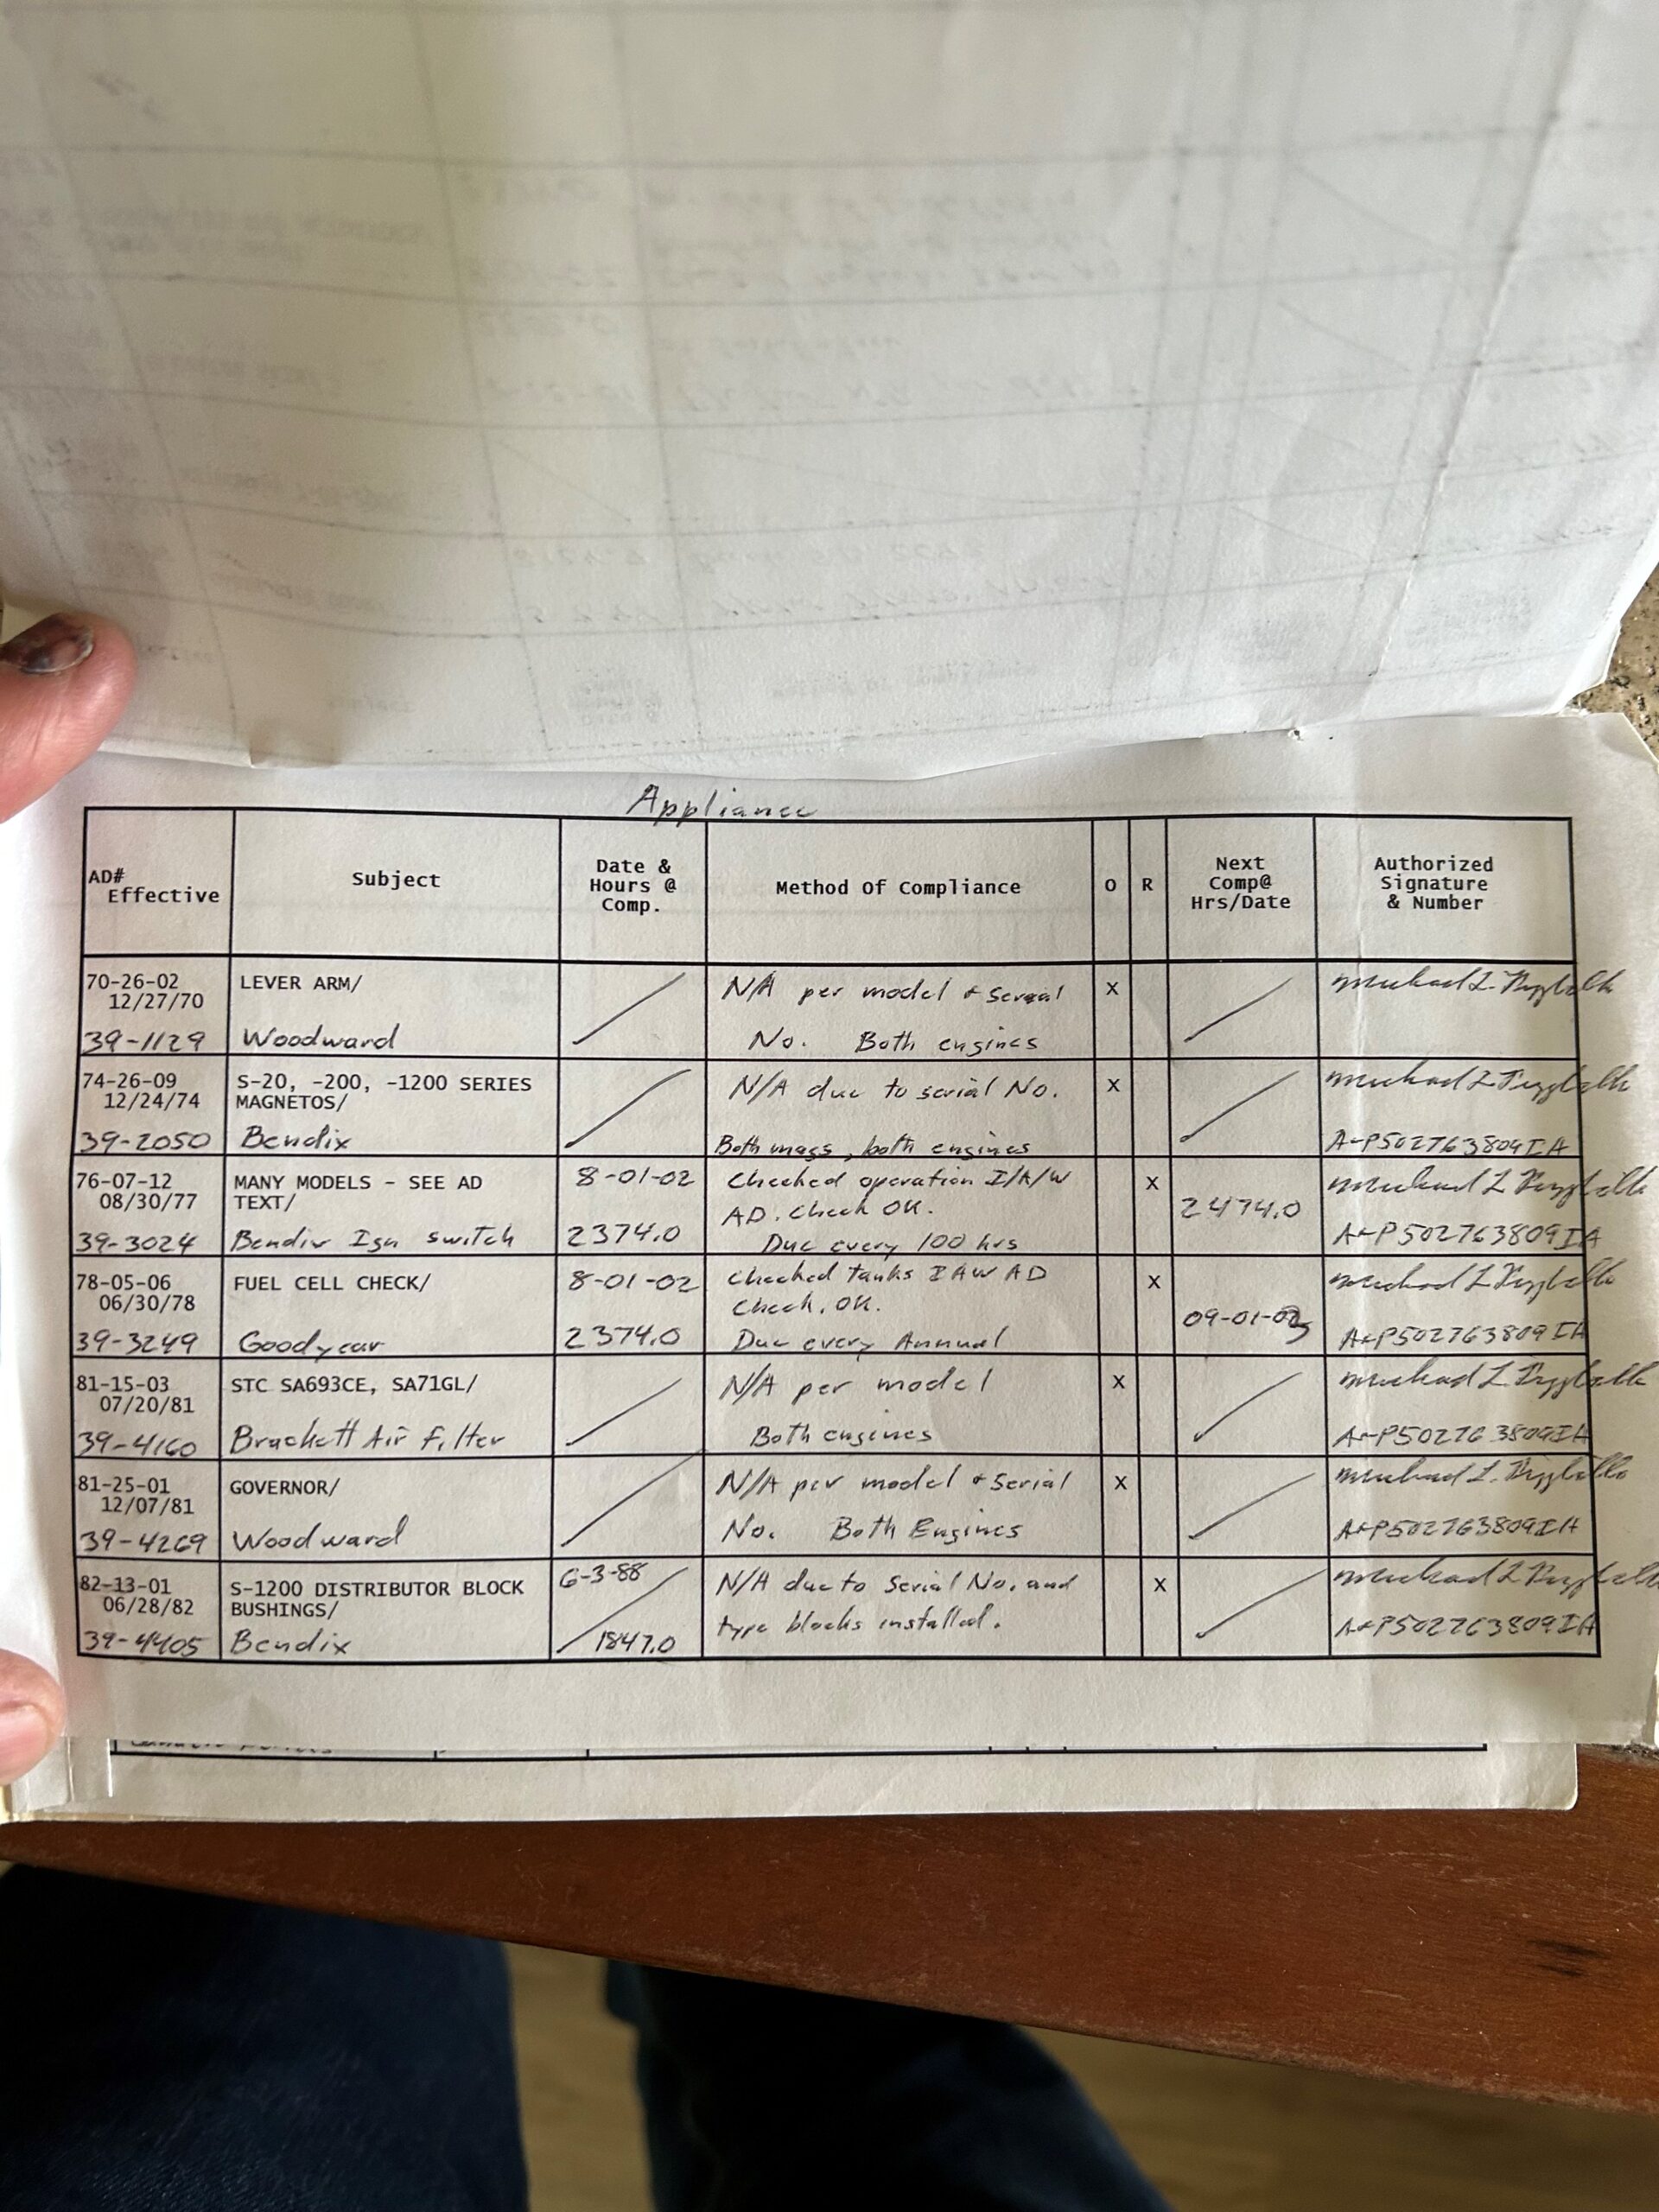 Appliance
AD# Effective Subject Date & Hours @ Comp. Method Of Compliance O R Next Comp@ Hrs/Date Authorized Signature & Number
70-26-02 LEVER ARM/ N/A per model + Serial X Michael L.
12/27/70
39-1129 Woodward No. Both engines
74-26-09 S-20, -200, -1200 SERIES N/A due to serial No. X Michael L
12/24/74 MAGNETOS/
39-2050 Bendix Both mags, both engines A+P502763809IA
76-07-12 MANY MODELS - SEE AD 8-01-02 Checked operation I/A/W X Michael L
08/30/77 TEXT/ AD. Check OK. 2474.0
39-3024 Bendix Ign switch 2374.0 Due every 100 hrs A+P502763809IA
78-05-06 FUEL CELL CHECK/ 8-01-02 Checked tanks IAW AD X Michael L
06/30/78 Check. OK. 09-01-03
39-3249 Goodyear 2374.0 Due every Annual A+P502763809IA
81-15-03 STC SA693CE, SA71GL/ N/A per model X Michael L
07/20/81
39-4160 Brackett Air filter Both engines A+P502763809IA
81-25-01 GOVERNOR/ N/A per model + Serial X Michael L.
12/07/81
39-4269 Woodward No. Both Engines A+P502763809IA
82-13-01 S-1200 DISTRIBUTOR BLOCK 6-3-88 N/A due to Serial No. and X Michael L
06/28/82 BUSHINGS/ type blocks installed.
39-4405 Bendix 1847.0 A+P502763809IA